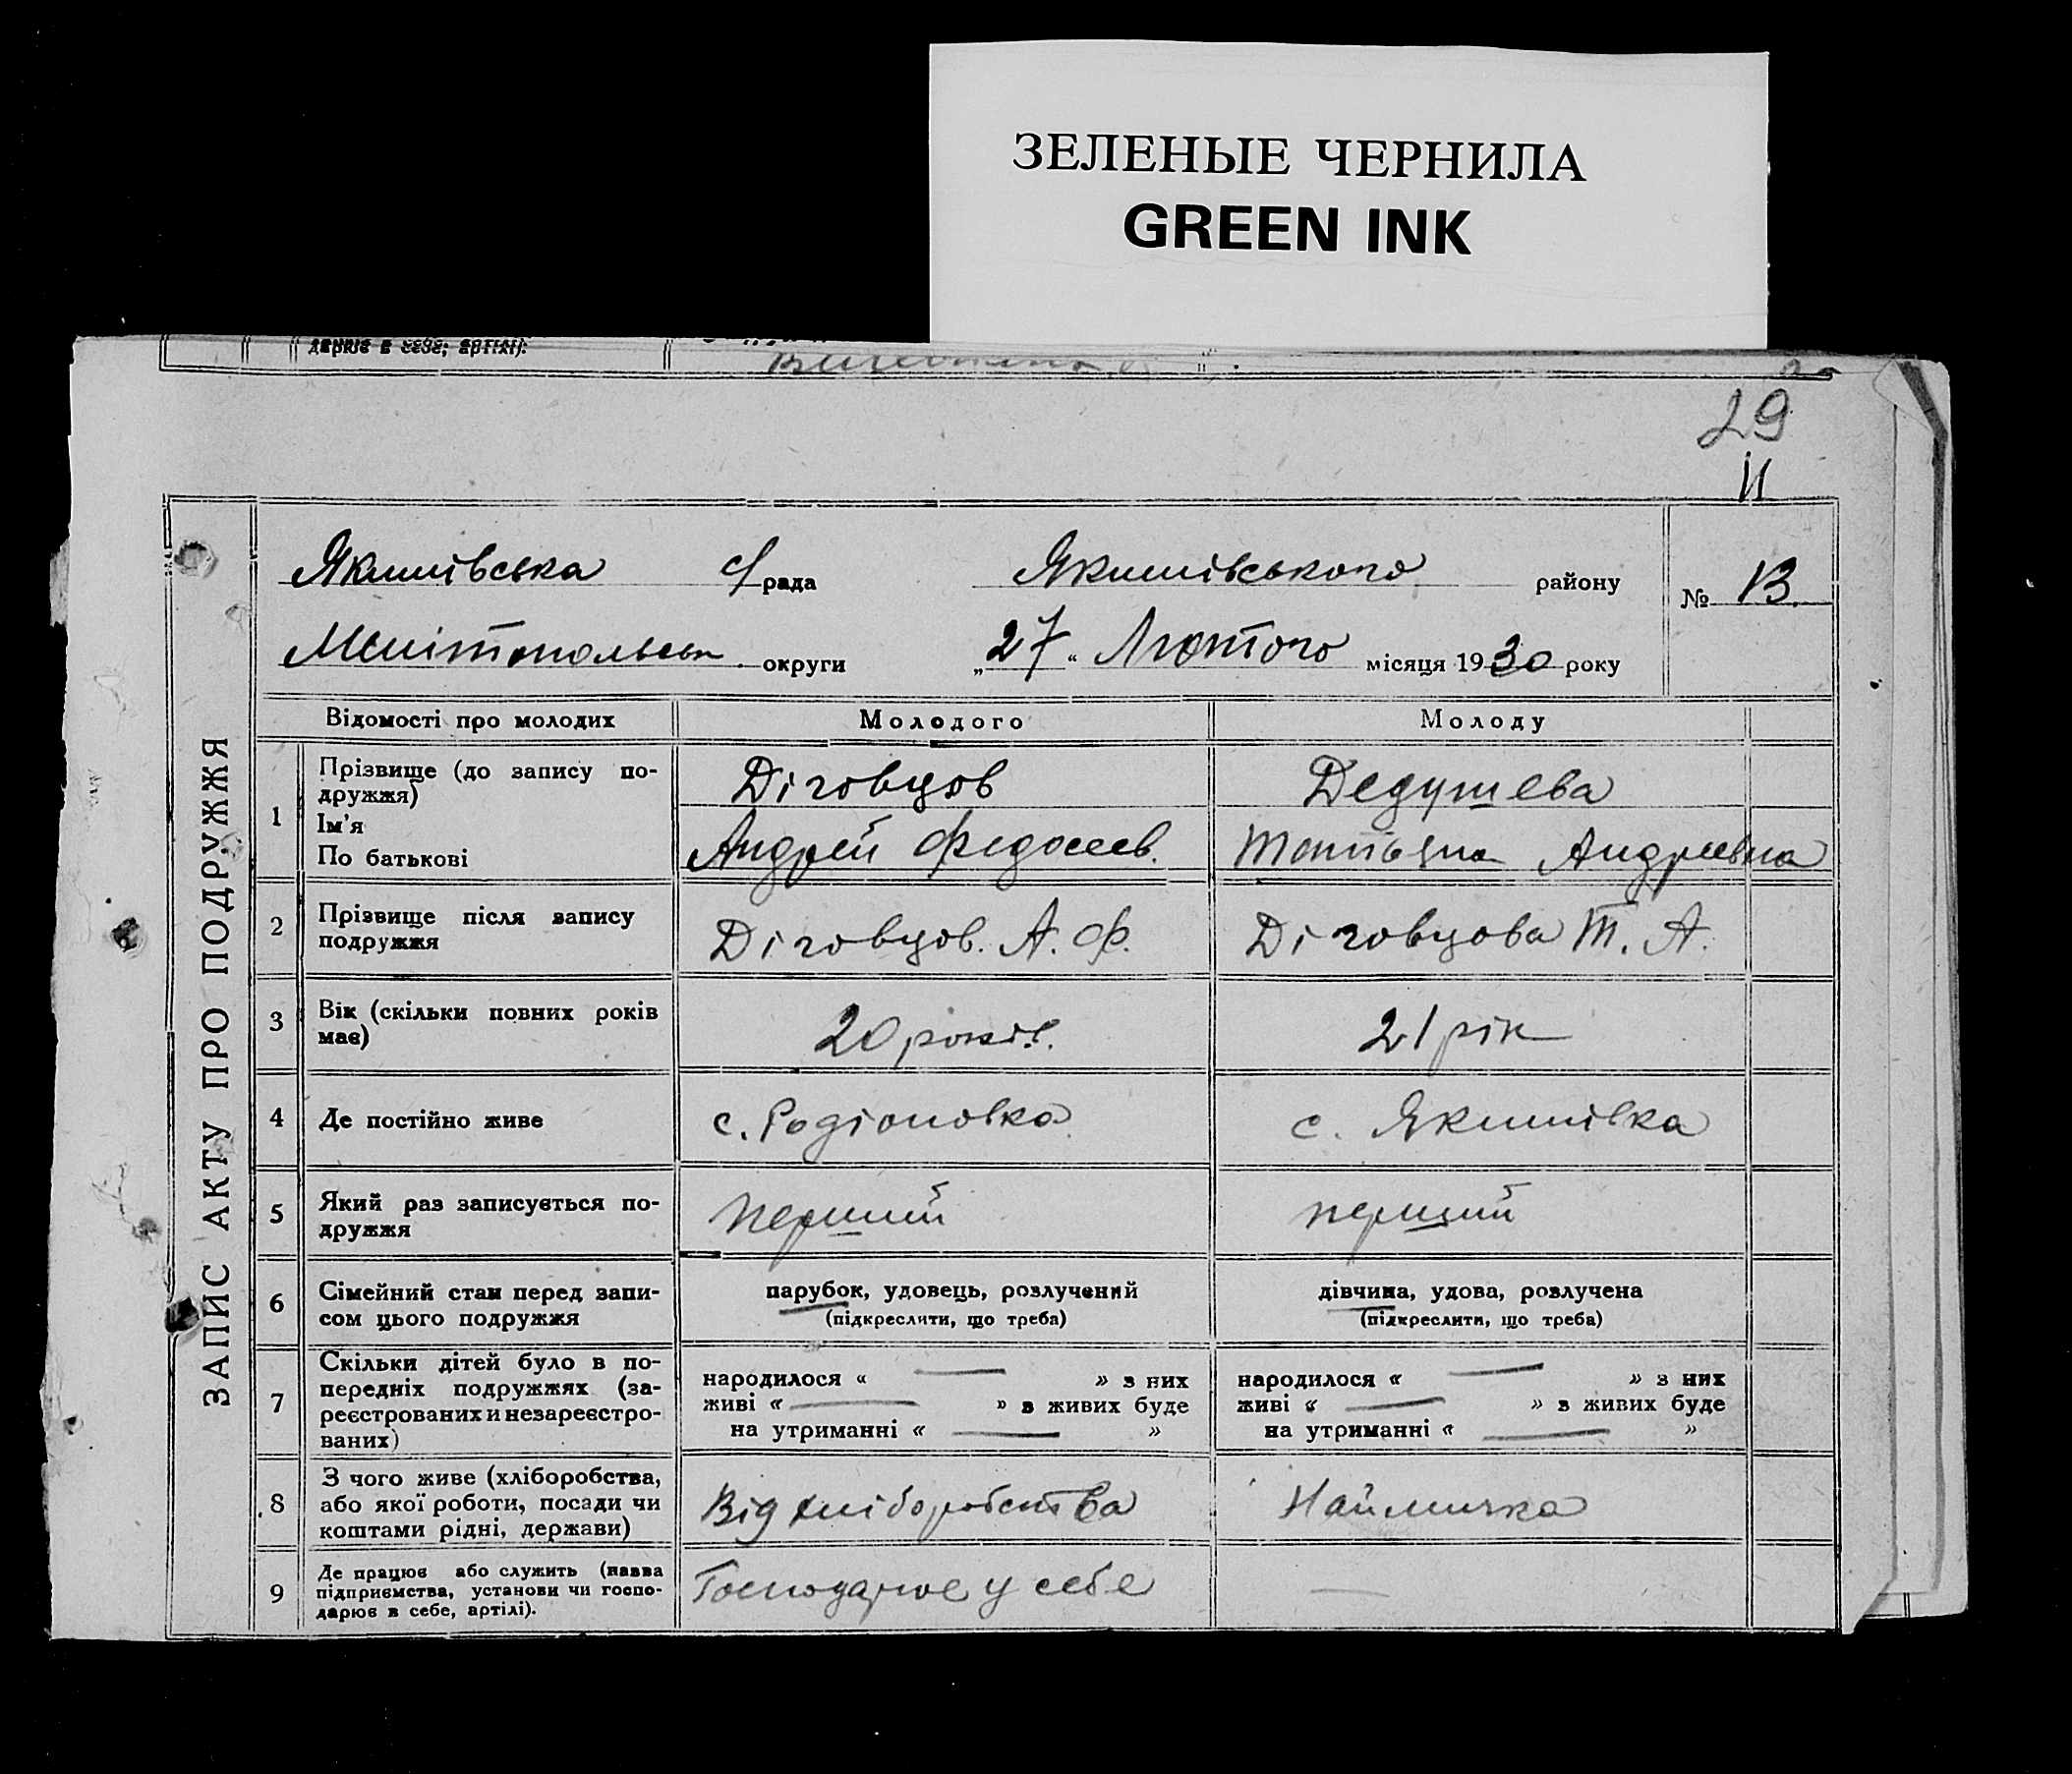 ЗЕЛЕНЫЕ ЧЕРНИЛА
GREEN INK
дарює в себе, артілі).
29
ЗАПИС АКТУ ПРО ПОДРУЖЖЯ
Якимівська с/рада Якимівського району № 13.
Мелітопольськ. округи „27“ Лютого місяця 1930 року
Відомості про молодих Молодого Молоду
1 Прізвище (до запису по-
дружжя) Діговцов Дедушева
Ім'я
По батькові Андрей Федосеев. Татьяна Андреевна
2 Прізвище після запису
подружжя Діговцов. А. Ф. Діговцова Т. А.
3 Вік (скільки повних років
має) 20 років. 21 рік
4 Де постійно живе с. Родіоновка с. Якимівка
5 Який раз записується по-
дружжя перший перший
6 Сімейний стан перед запи-
сом цього подружжя парубок, удовець, розлучений
(підкреслити, що треба) дівчина, удова, розлучена
(підкреслити, що треба)
7 Скільки дітей було в по-
передніх подружжях (за-
реєстрованих и незареєстро-
ваних) народилося « — » з них
живі « — » в живих буде
на утриманні « — »
народилося « — » з них
живі « — » в живих буде
на утриманні « — »
8 З чого живе (хліборобства,
або якої роботи, посади чи
коштами рідні, держави) Від хліборобства Наймичка
9 Де працює або служить (назва
підприємства, установи чи госпо-
дарює в себе, артілі). Господарює у себе —